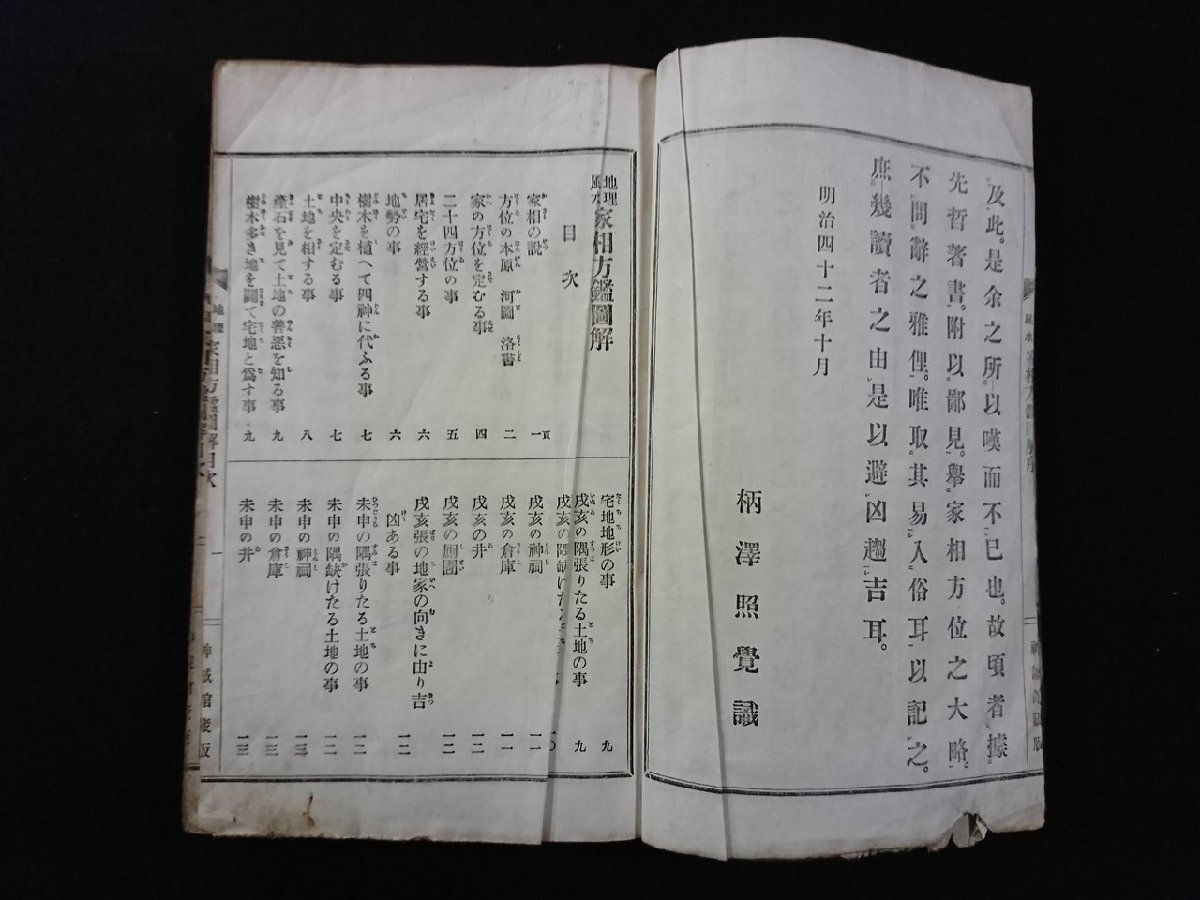 及此。是余之所以嘆而不已也。故頃者據
先哲著書。附以鄙見。擧家相方位之大略。
不問辭之雅俚。唯取其易入俗耳以記之。
庶幾讀者之由是以避凶趨吉耳。
明治四十二年十月
柄澤照覺識
地理風水家相方鑑圖解
目次
家相の説 一頁
方位の本原 河圖 洛書 二
家の方位を定むる事 四
二十四方位の事 五
居宅を經營する事 六
地勢の事 六
樹木を植へて四神に代ふる事 七
中央を定むる事 七
土地を相する事 八
產石を見て土地の善惡を知る事 九
樹木多き地を闢て宅地と爲す事 九
宅地地形の事 九
戌亥の隅張りたる土地の事 九
戌亥の隅缺けた 一〇
戌亥の神祠 一一
戌亥の倉庫 一一
戌亥の井 一二
戌亥の厠圊 一二
戌亥張の地家の向きに由り吉
凶ある事 一二
未申の隅張りたる土地の事 一二
未申の隅缺けたる土地の事 一二
未申の神祠 一三
未申の倉庫 一三
未申の井 一三
地理 家相方鑑圖解目次
一
神誠館藏版